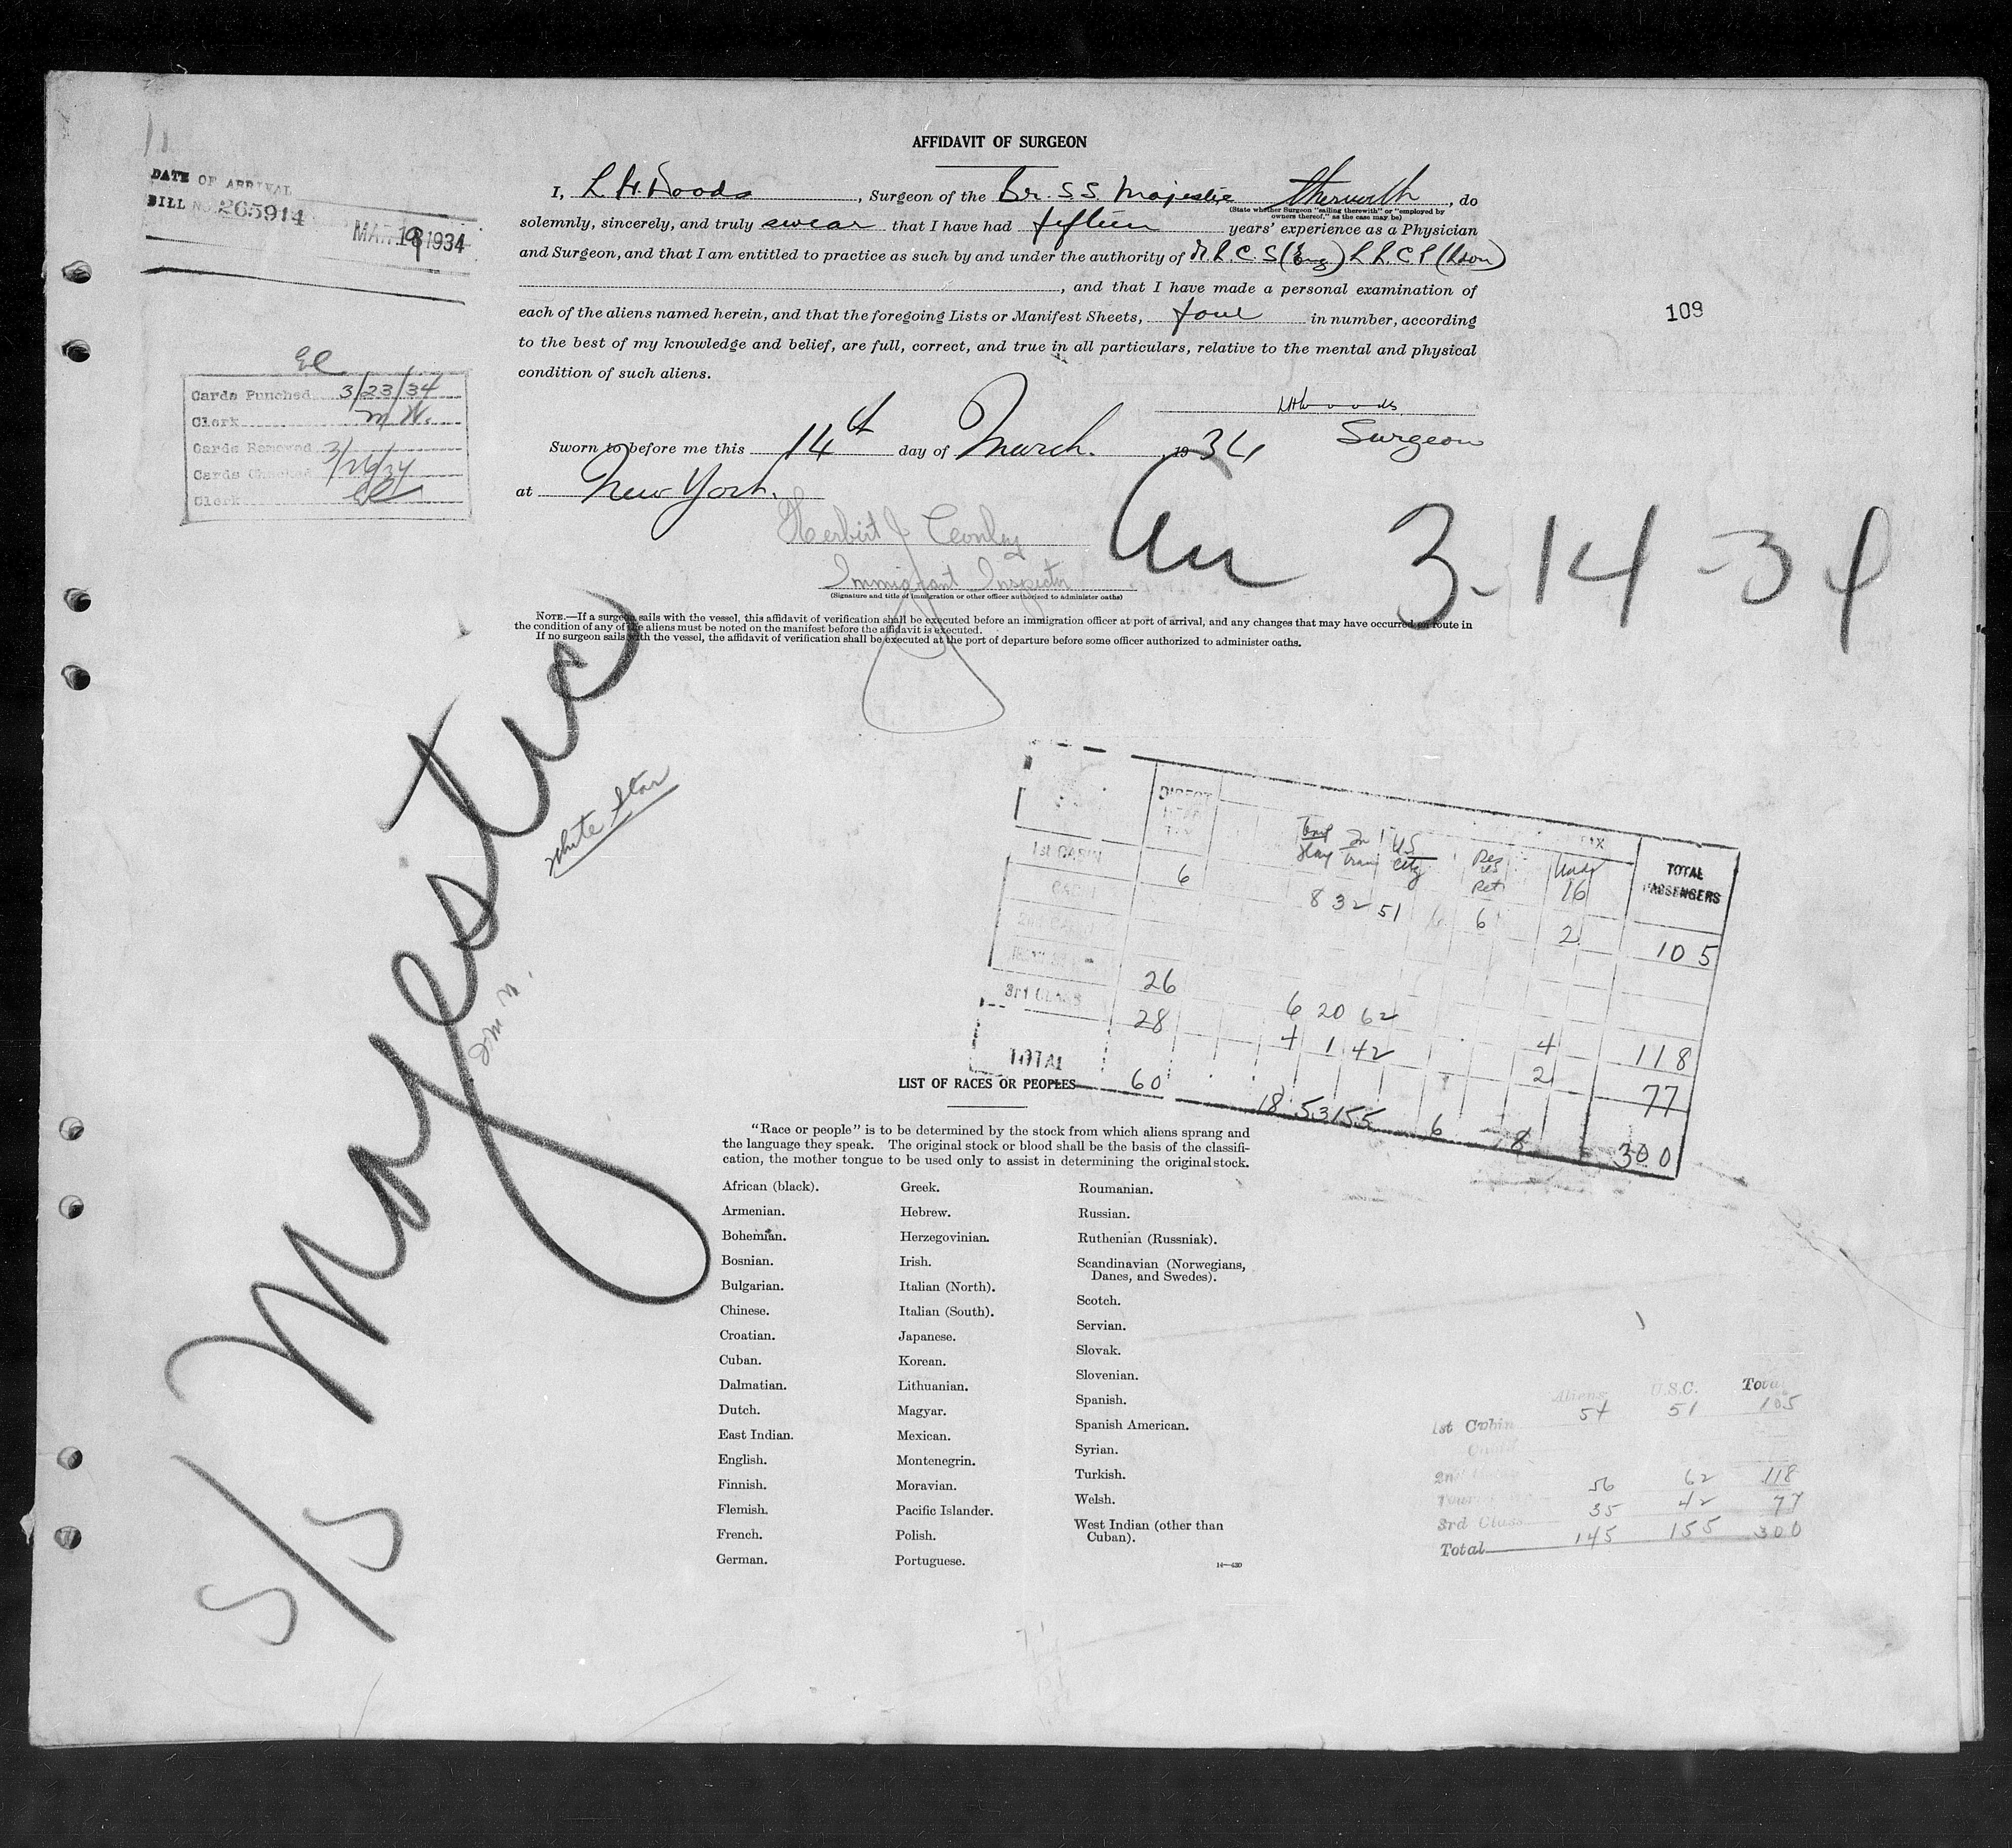 AFFIDAVIT OF SURGEON
DATE OF ARRIVAL
BILL NO. 265914
MAR 1934
I, L H. Woods, Surgeon of the Br. SS Majestic therewith, do
(State whether Surgeon "sailing therewith" or "employed by
owners thereof," as the case may be)
solemnly, sincerely, and truly swear that I have had fifteen years' experience as a Physician
and Surgeon, and that I am entitled to practice as such by and under the authority of M.R.C.S (Eng) L.R.C.P (Lon)
, and that I have made a personal examination of
each of the aliens named herein, and that the foregoing Lists or Manifest Sheets, four in number, according
to the best of my knowledge and belief, are full, correct, and true in all particulars, relative to the mental and physical
condition of such aliens.
109
LHWoods
Surgeon
Sworn to before me this 14th day of March. 1934
at New York.
Herbert J
Immigrant Inspector
(Signature and title of immigration or other officer authorized to administer oaths)
NOTE.—If a surgeon sails with the vessel, this affidavit of verification shall be executed before an immigration officer at port of arrival, and any changes that may have occurred en route in
the condition of any of the aliens must be noted on the manifest before the affidavit is executed.
If no surgeon sails with the vessel, the affidavit of verification shall be executed at the port of departure before some officer authorized to administer oaths.
Cards Punched 3/23/34
Clerk M W.
Cards Removed
Cards Checked 3/26/34
Clerk
3-14-34
S/S Majestic
White Star
DIRECT
HEAD
TAX
TAX
TOTAL
PASSENGERS
In
Tran
US
City
Under
16
1st CABIN 6 8 32 51 6 2 105
CABIN
2nd CABIN
26 6 20 62 4 118
3rd CLASS 28 4 1 42 2 77
TOTAL 60 18 53 155 6 8 300
LIST OF RACES OR PEOPLES
"Race or people" is to be determined by the stock from which aliens sprang and
the language they speak. The original stock or blood shall be the basis of the classifi-
cation, the mother tongue to be used only to assist in determining the original stock.
African (black).
Armenian.
Bohemian.
Bosnian.
Bulgarian.
Chinese.
Croatian.
Cuban.
Dalmatian.
Dutch.
East Indian.
English.
Finnish.
Flemish.
French.
German.
Greek.
Hebrew.
Herzegovinian.
Irish.
Italian (North).
Italian (South).
Japanese.
Korean.
Lithuanian.
Magyar.
Mexican.
Montenegrin.
Moravian.
Pacific Islander.
Polish.
Portuguese.
Roumanian.
Russian.
Ruthenian (Russniak).
Scandinavian (Norwegians,
Danes, and Swedes).
Scotch.
Servian.
Slovak.
Slovenian.
Spanish.
Spanish American.
Syrian.
Turkish.
Welsh.
West Indian (other than
Cuban).
14—430
Aliens U.S.C. Total
1st Cabin 54 51 105
Cabin
2nd
Tour 56 62 118
3rd Class 35 42 77
Total 145 155 300